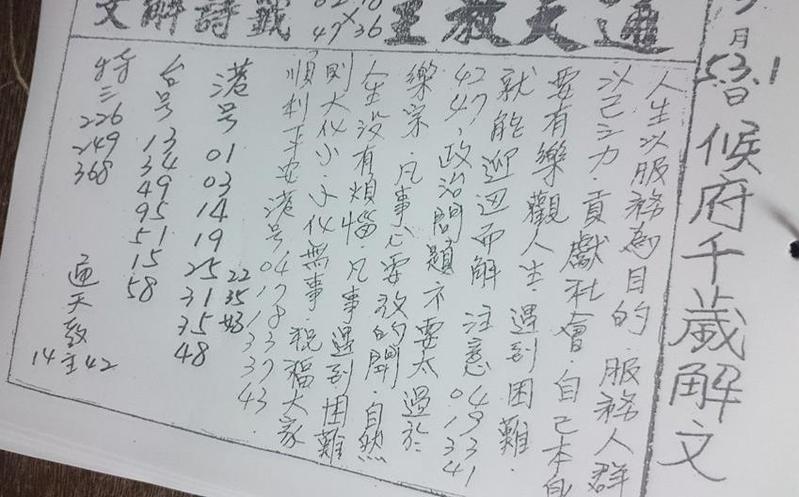 通天教主
籤詩解文
47×36
月
5.3.1
日
候府千歲解文
人生以服務為目的.服務人群
以己之力.貢獻社會 自己本身
要有樂觀人生.遇到困難.
就能迎迎而解 注意
42 47、政治問題 不要太過於
樂宗.凡事心要放的開.自然
人生沒有煩惱.凡事遇到困難
則大化小.小化無事.祝福大家
順利平安 港号
港号 01 03 14 19 25 31 35 48
22 35
台号 13 34 49 95 51 15 58
特三 226 249 368
通天教主
14 42